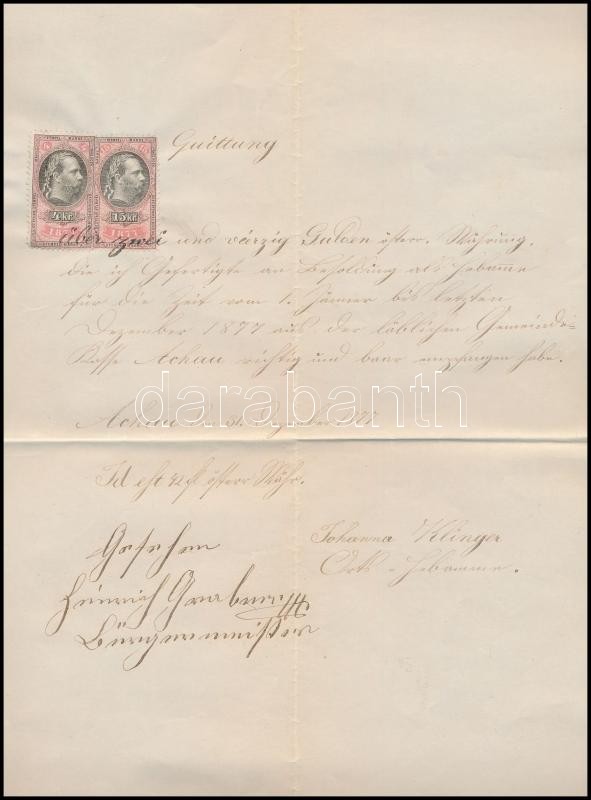 Quittung
4 kr. 15 kr.
1877 1877
Über zwei und vierzig Gulden österr. Währung,
die ich Gefertigte an Besoldung als Hebamme
für die Zeit vom 1. Jänner bis letzten
Dezember 1877 aus der löblichen Gemeinde-
Kasse Achau richtig und baar empfangen habe.
darabanth
Achau den 31. Dezember 1877
Id est 42 fl österr Währ.
Gesehen
Johanna Klinger
Orts-Hebamme.
Heinrich
Bürgermeister